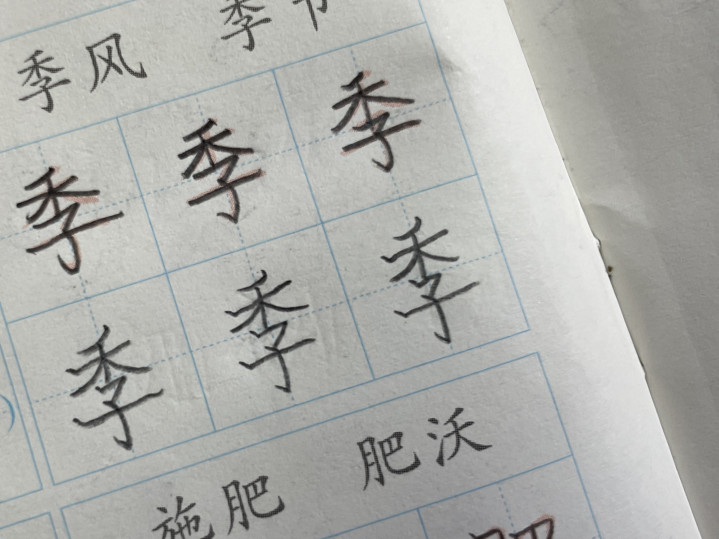 季风 季节
季季季
季季季
施肥 肥沃
肥